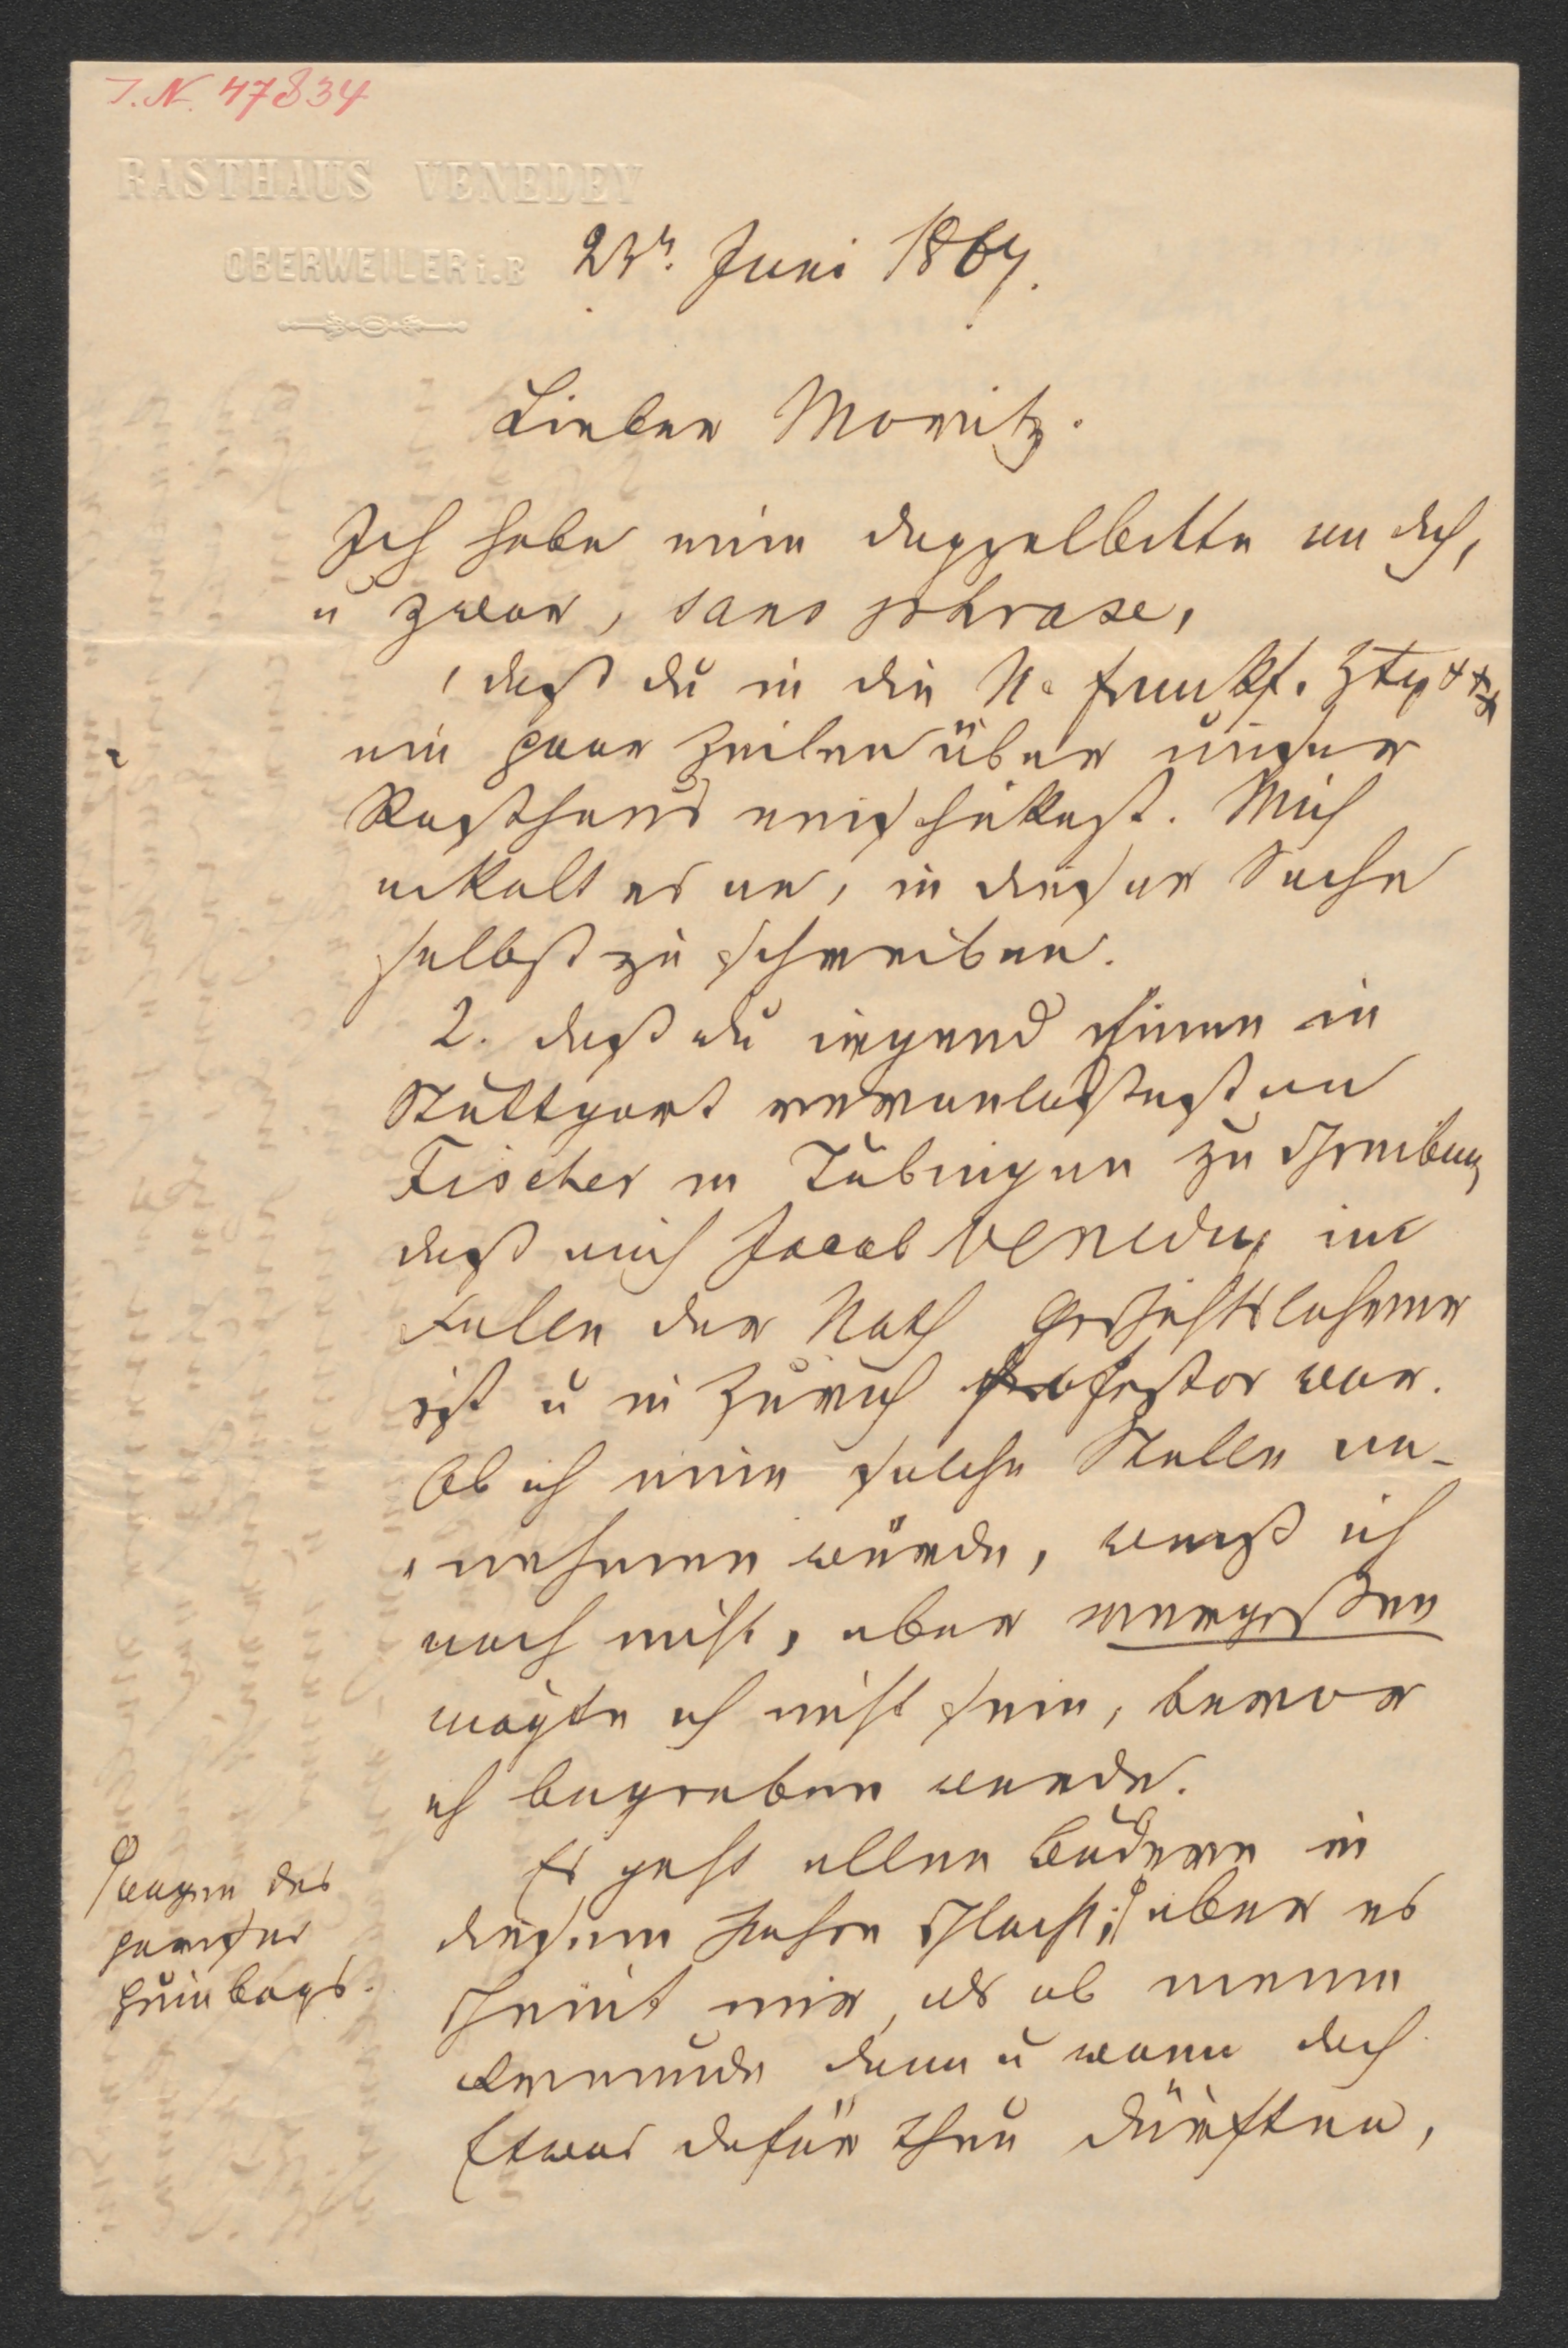 I.N. 47834
RASTHAUS VENEDEY
OBERWEILER i. B
23r. Juni 1867.
Lieber Moritz.
Ich habe eine Doppelbitte an dich,
u zwar, sans phrase,
1 daß du in die N. Frankf. Ztg
ein paar Zeilen über unser
Rasthaus einschickest. Mich
eckelt es an, in dieser Sache
selbst zu schreiben.
2. daß du irgend einen in
Stuttgart veranlassest an
Fischer in Tübingen zu schreiben,
daß auch Jacob Venedey im
Falle der Noth Geschichtslehrer
ist u in Zürich Professor war.
Ob ich eine solche Stelle an-
nehmen würde, weiß ich
noch nicht, aber vergessen
mögte ich nicht sein, bevor
ich begraben werde.
Es geht allen Bädern in
diesem Jahre schlecht; aber es
scheint mir, als ob meine
Freunde dann u wann doch
Etwas dafür thun dürften,
wegen des
pariser